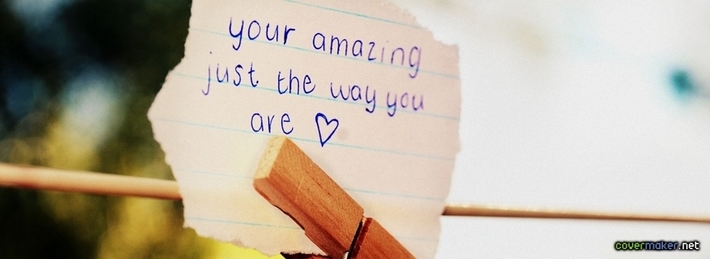 your amazing
just the way you
are ♡
covermaker.net